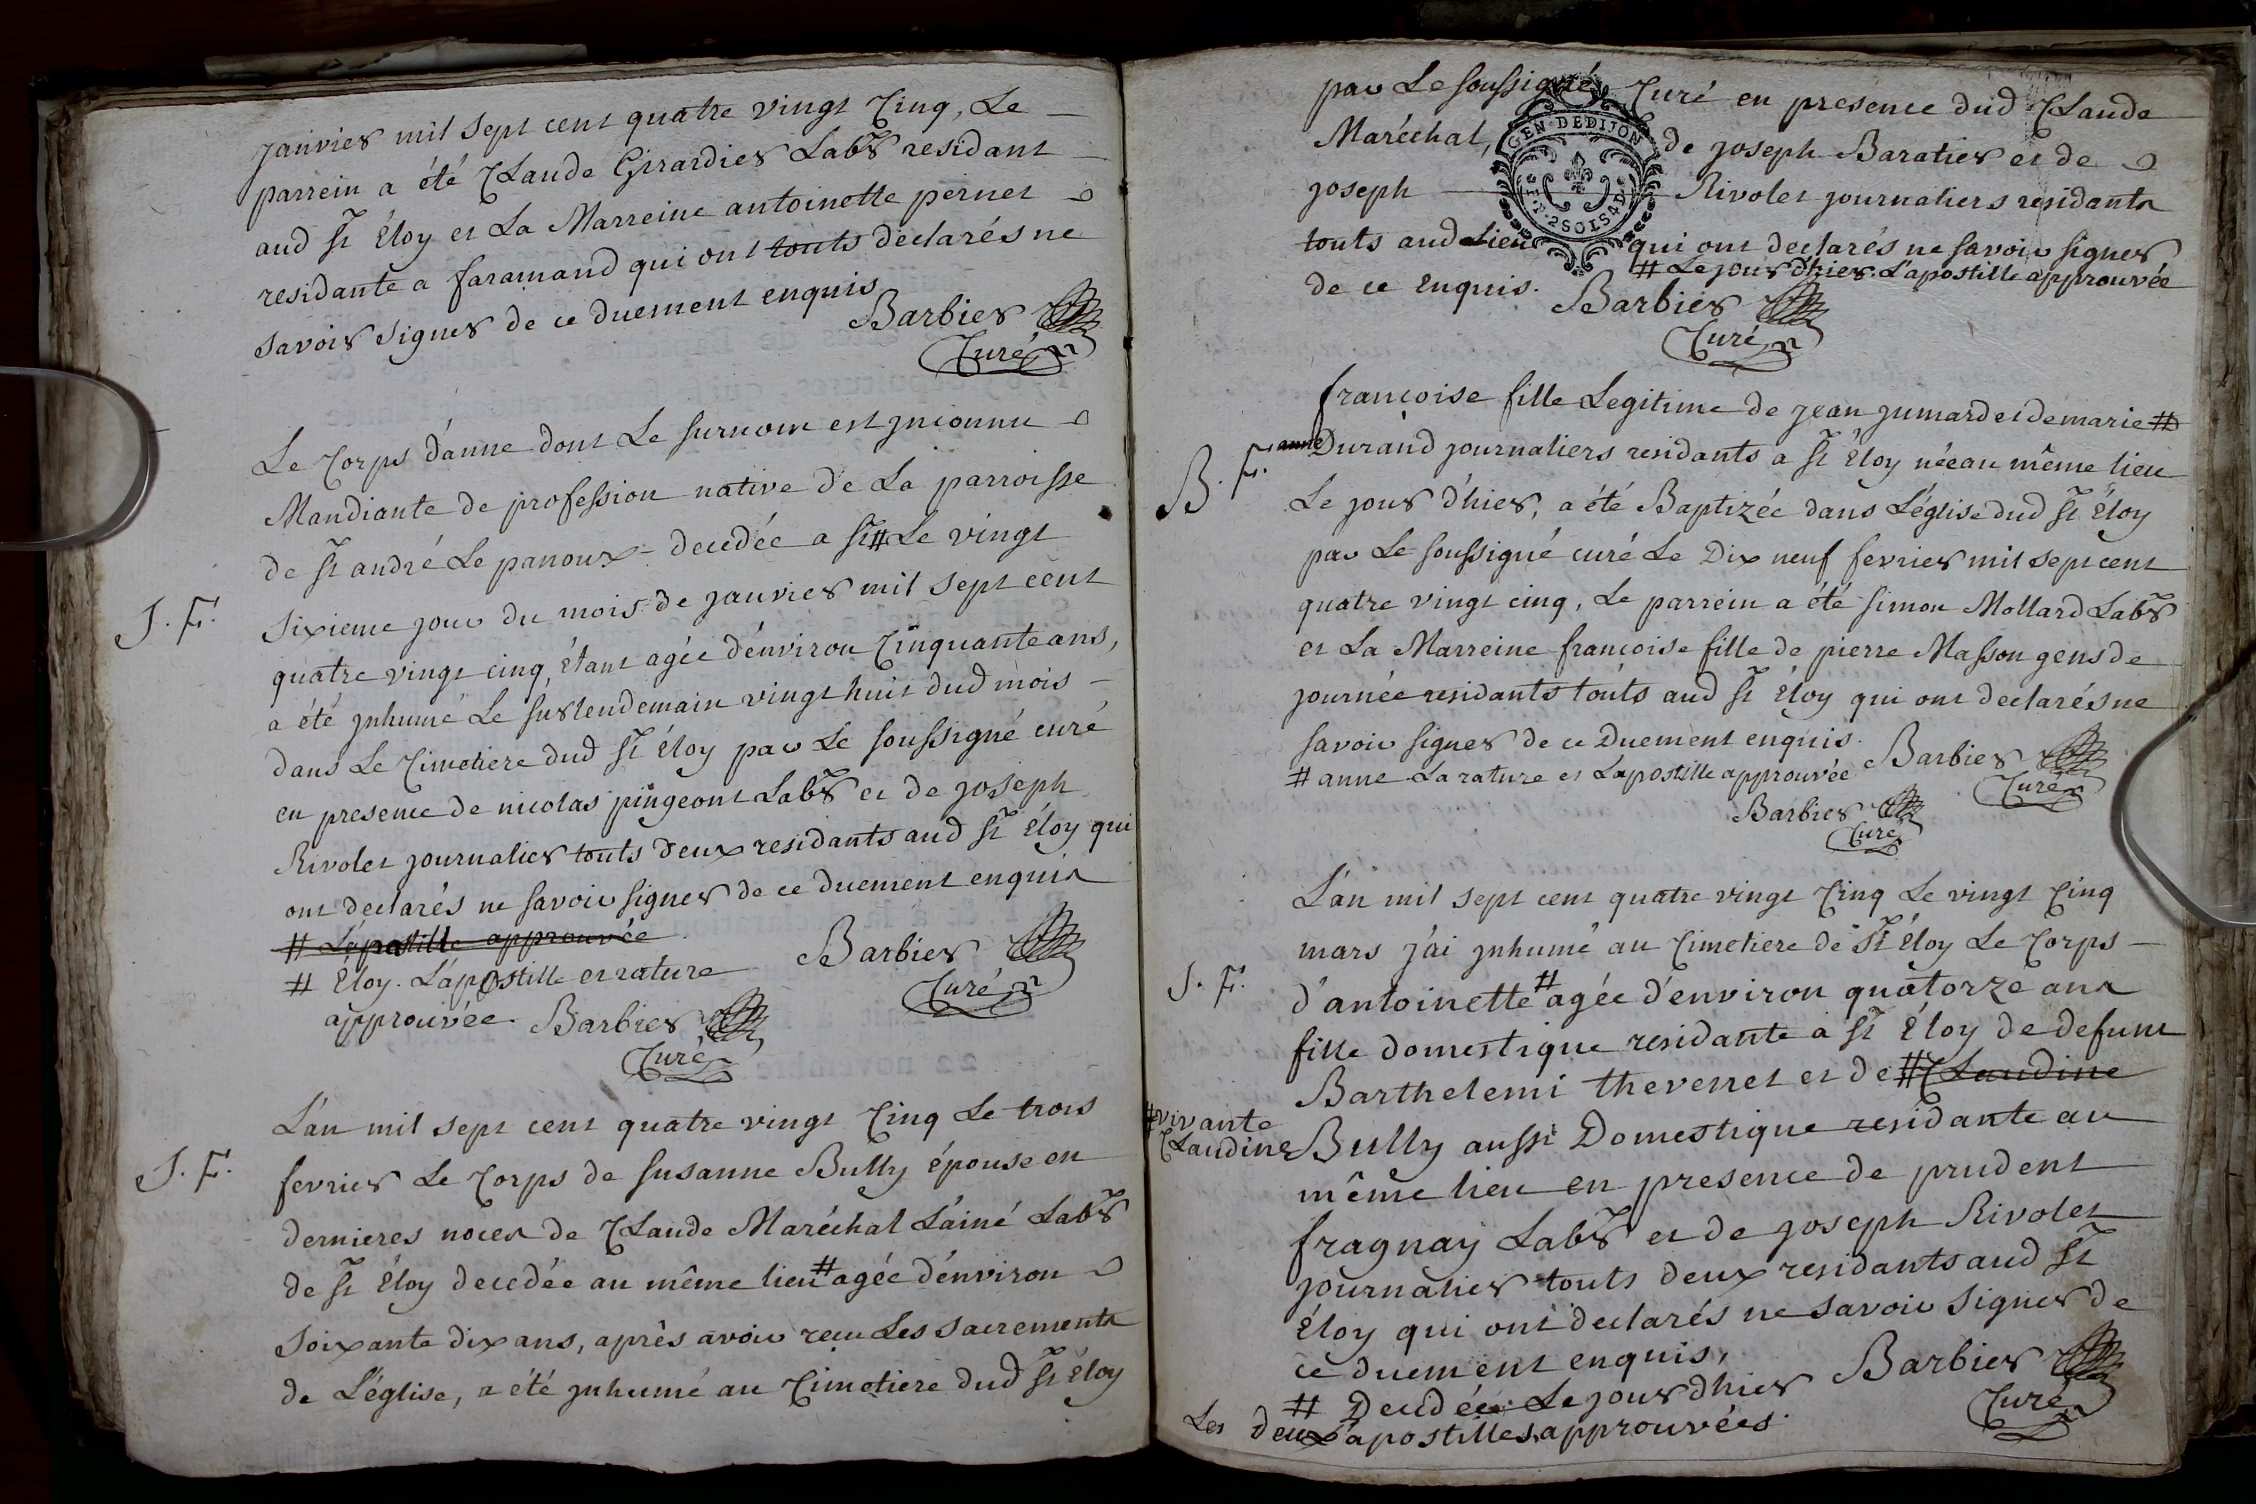 janvier mil sept cent quatre vingt Cinq, Le
parrein a été Claude Girardier Labr residant
aud St Éloy et La Marreine antoinette pernet
residante a faramand qui ont touts déclarés ne
savoir signer de ce duement enquis
Barbier
Curé
Le Corps d'anne dont Le surnom est jnconnu
Mandiante de profession native de La parroisse
de St andré Le panoux decedée a St # Le vingt
J. F.
sixieme jour du mois de janvier mil sept cent
quatre vingt cinq, étant agée d'environ Cinquante ans,
a été jnhumé Le surlendemain vingt huit dud mois
dans Le Cimetiere dud St Éloy par Le soussigné curé
en presence de nicolas pingeont Labr et de joseph
Rivolet journalier touts deux residants aud St Éloy qui
ont declarés ne savoir signer de ce duement enquis
# L'apostille approuvée
Barbier
Curé
# Éloy. L'apostille et rature
approuvée. Barbier
Curé
L'an mil sept cent quatre vingt Cinq Le trois
J. F.
fevrier Le Corps de susanne Bully épouse en
dernieres noces de Claude Maréchal L'ainé Labr
de St Éloy decedée au même lieu # agée d'environ
soixante dix ans, après avoir recu Les sacrements
de L'église, a été jnhumé au Cimetiere dud St Éloy
par Le soussigné Curé en presence dud Claude
Maréchal, de joseph Baratier et de
joseph Rivolet journaliers residants
touts aud Lieu qui ont declarés ne savoir signer
de ce enquis. # Le jour d'hier L'apostille approuvée
Barbier
Curé
GEN·DEDIJON
2SOLS4D
françoise fille Legitime de jean jumard et de marie #
B. F.
anne Durand journaliers residants a St Éloy née au même lieu
Le jour d'hier, a été Baptizée dans L'église dud St Éloy
par Le soussigné curé Le Dix neuf fevrier mil sept cent
quatre vingt cinq, Le parrein a été simon Mollard Labr
et La Marreine françoise fille de pierre Masson gens de
journée residants touts aud St Éloy qui ont declarés ne
savoir signer de ce Duement enquis.
Barbier
Curé
# anne La rature et L'apostille approuvée
Barbier
Curé
L'an mil sept cent quatre vingt Cinq Le vingt Cinq
mars j'ai jnhumé au Cimetiere de St Éloy Le Corps
J. F.
d'antoinette # agée d'environ quatorze ans
fille domestique residante a St Éloy de defunt
Barthelemi thevenet et de # Claudine
# vivante
Claudine
Bully aussi Domestique residante au
même lieu en presence de prudent
fragnay Labr et de joseph Rivolet
journalier touts deux residants aud St
Éloy qui ont declarés ne savoir signer de
ce duement enquis,
Barbier
Curé
# Decidée Le jour d'hier
Les deux apostilles approuvées.